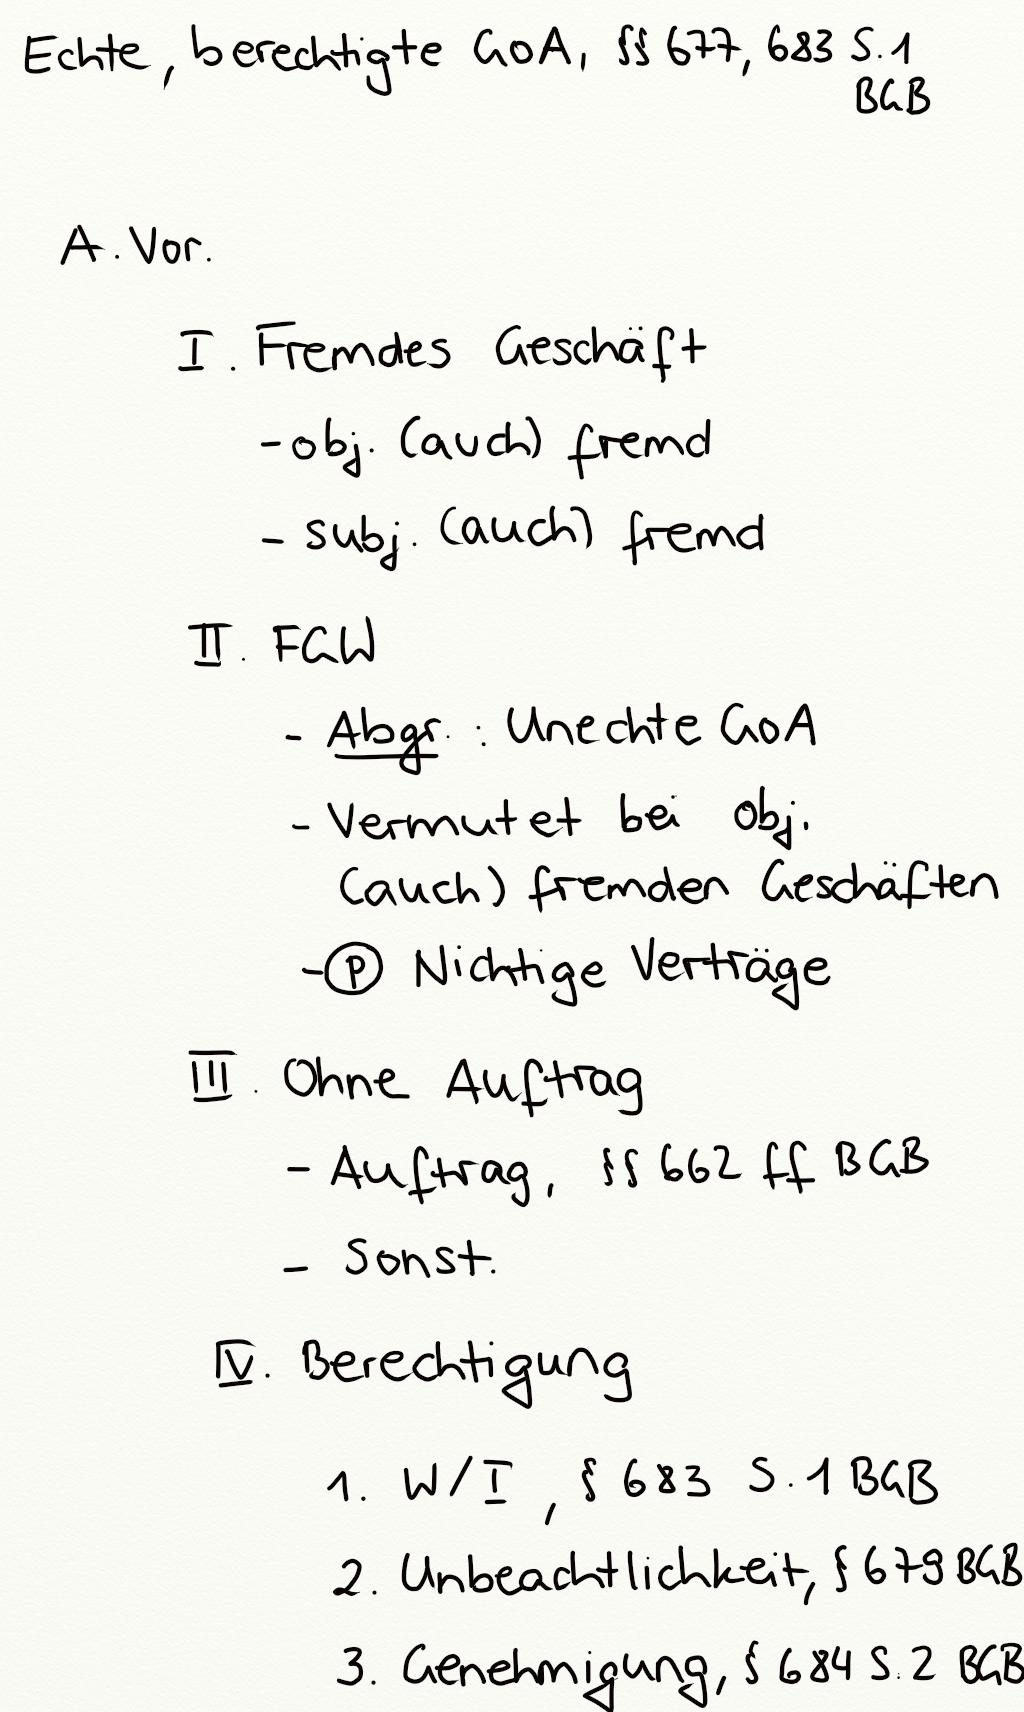 Echte, berechtigte GoA, §§ 677, 683 S.1
BGB
A. Vor.
I. Fremdes Geschäft
- obj. (auch) fremd
- subj. (auch) fremd
II. FGW
- Abgr. : Unechte GoA
- Vermutet bei obj.
(auch) fremden Geschäften
- Ⓟ Nichtige Verträge
III. Ohne Auftrag
- Auftrag, §§ 662 ff BGB
- Sonst.
IV. Berechtigung
1. W/I, § 683 S.1 BGB
2. Unbeachtlichkeit, § 679 BGB
3. Genehmigung, § 684 S.2 BGB